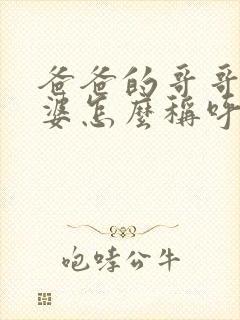 爸爸的哥哥
婆怎麼稱呼
咆哮公牛